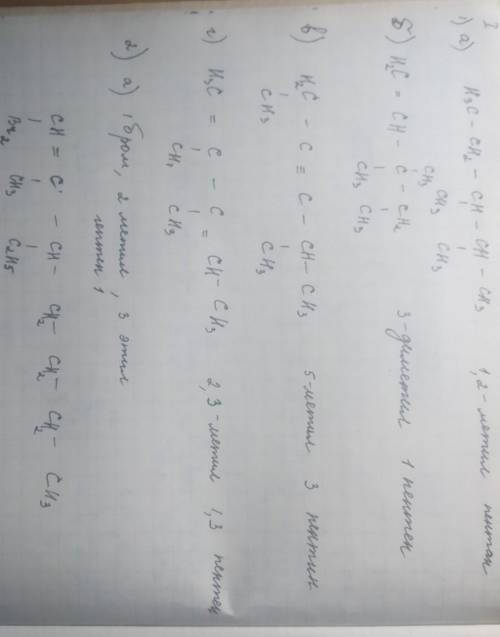 I
1) а) H3C – CH2 – CH – CH – CH3 1,2 - метил пентан
CH3 CH3 CH3
б) H2C = CH – C – CH2 3-диметил 1 пентен
CH3 CH3
в) H2C – C ≡ C – CH – CH3 5-метил 3 пентин
CH3 CH3
г) H3C = C – C = CH – CH3 2,3-метил 1,3 пентен
CH3 CH3
2) а) 1 бром, 2 метил, 3 этил
гептен 1
CH = C – CH – CH2 – CH2 – CH2 – CH3
Br2 CH3 C2H5